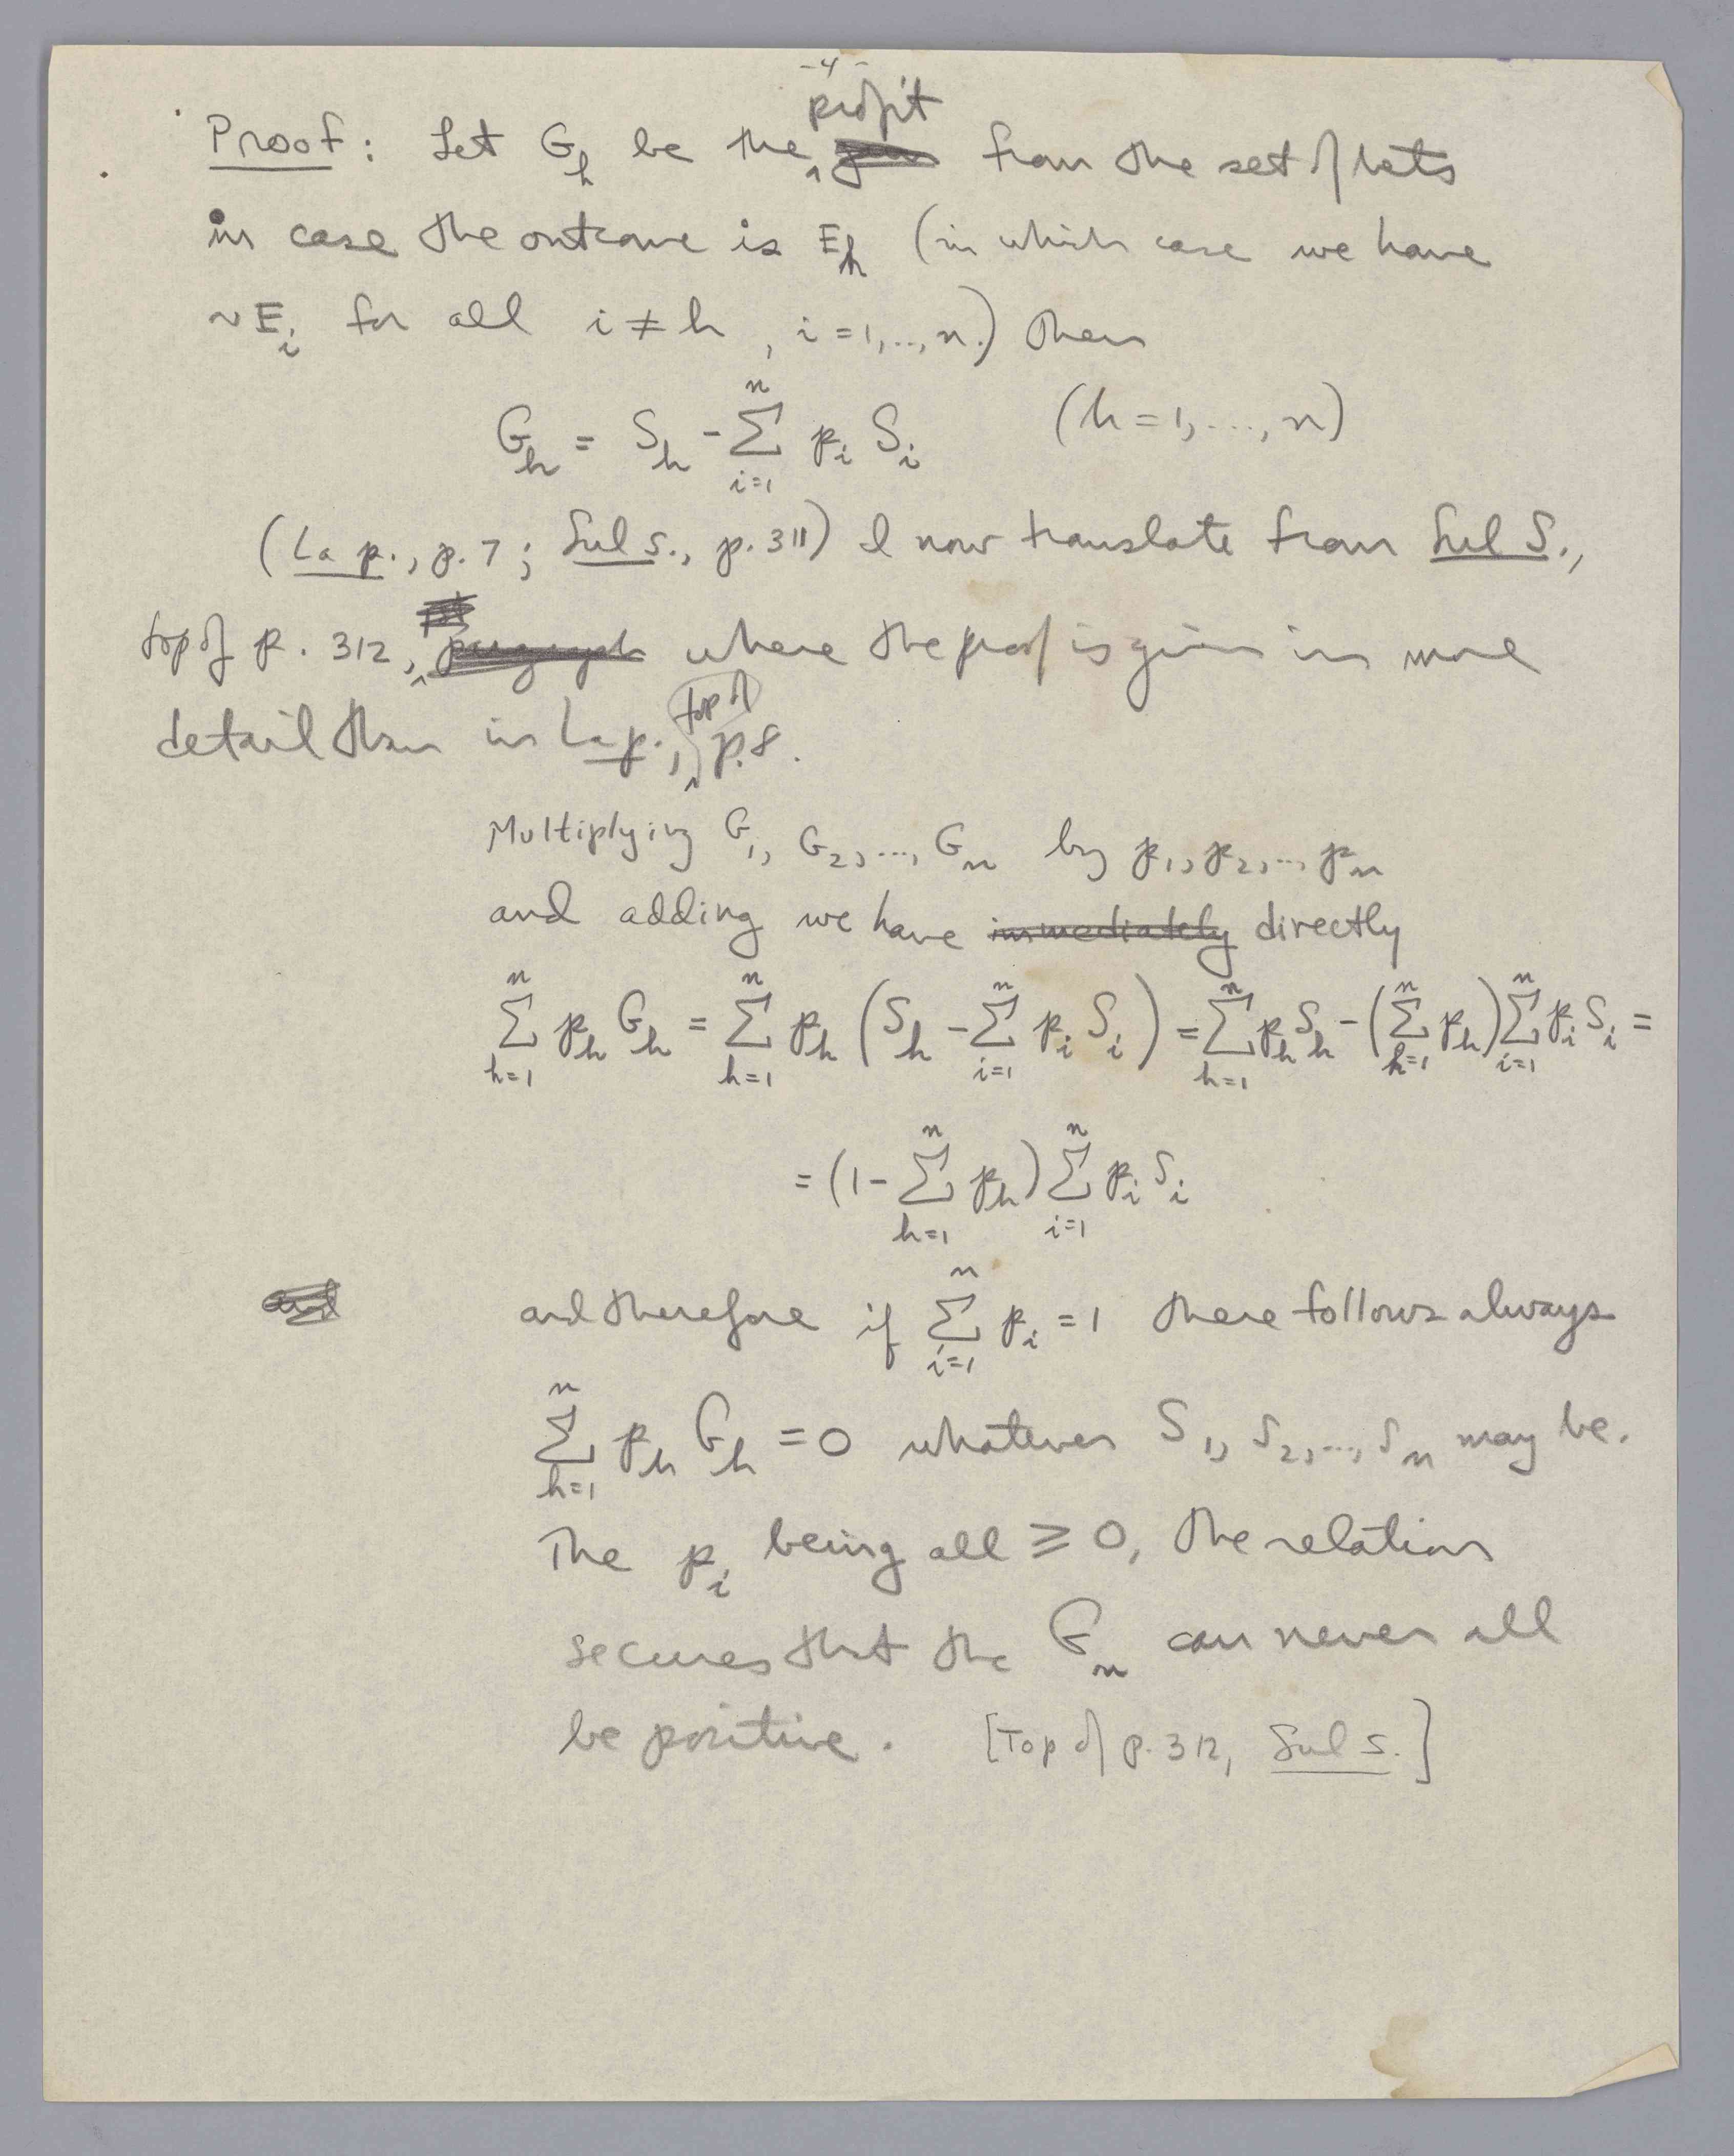 -4-
Proof: Let G_h be the profit from the set of bets
in case the outcome is E_h (in which case we have
~E_i for all i ≠ h, i = 1,..,n.) Then
G_h = S_h - ∑_{i=1}^{n} p_i S_i (h = 1,...,n)
(La p., p. 7; Sul s., p. 311) I now translate from Sul S.,
top of p. 312, where the proof is given in more
detail than in La p., top of p. 8.
Multiplying G_1, G_2,..., G_n by p_1, p_2,... p_n
and adding we have immediately directly
∑_{h=1}^{n} p_h G_h = ∑_{h=1}^{n} p_h (S_h - ∑_{i=1}^{n} p_i S_i) = ∑_{h=1}^{n} p_h S_h - (∑_{h=1}^{n} p_h) ∑_{i=1}^{n} p_i S_i =
= (1 - ∑_{h=1}^{n} p_h) ∑_{i=1}^{n} p_i S_i
and therefore if ∑_{i=1}^{n} p_i = 1 there follows always
∑_{h=1}^{n} p_h G_h = 0 whatever S_1, S_2,..., S_n may be.
The p_i being all ≥ 0, the relation
secures that the G_n can never all
be positive. [Top of p. 312, Sul s.]